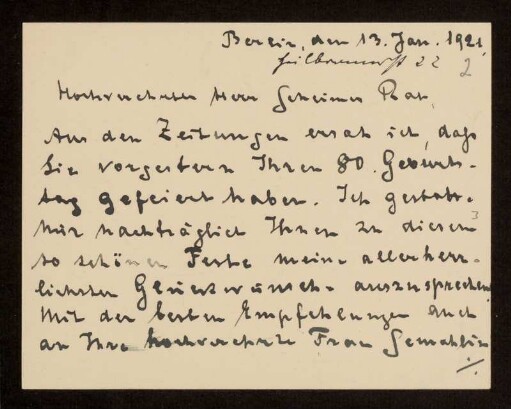 Berlin, den 13. Jan. 1921.
Heilbronnerst 22
2
Hochverehrter Herr Geheimer Rat,
Aus den Zeitungen ersah ich, daß
Sie vorgestern Ihren 80. Geburts-
tag gefeiert haben. Ich gestatte
mir nachträglich Ihnen zu diesem
so schönen Feste meine allerherz-
lichsten Glückwünsche auszusprechen.
Mit den besten Empfehlungen auch
an Ihre hochverehrte Frau Gemahlin